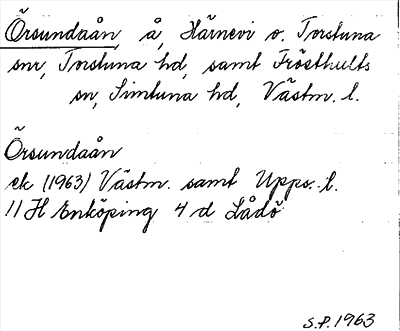 Örsundaån, å, Härnevi o. Torstuna
snr, Torstuna hd, samt Frösthults
sn, Simtuna hd, Västm. l.
Örsundaån
ek (1963) Västm. samt Upps. l.
11 H Enköping 4 d Lådö
S.P. 1963